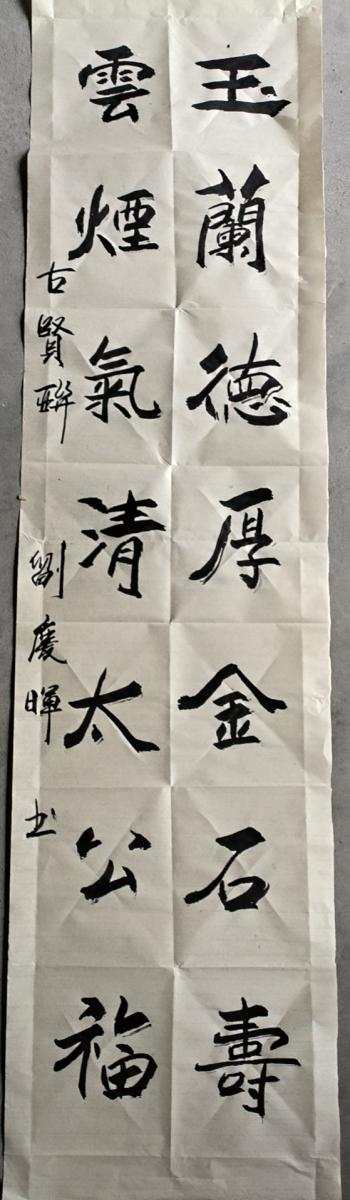 玉蘭德厚金石壽
雲煙氣清太公福
古賢聯
劉慶暉书